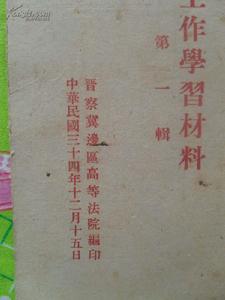 工作學習材料
第一輯
晉察冀邊區高等法院編印
中華民國三十四年十二月十五日